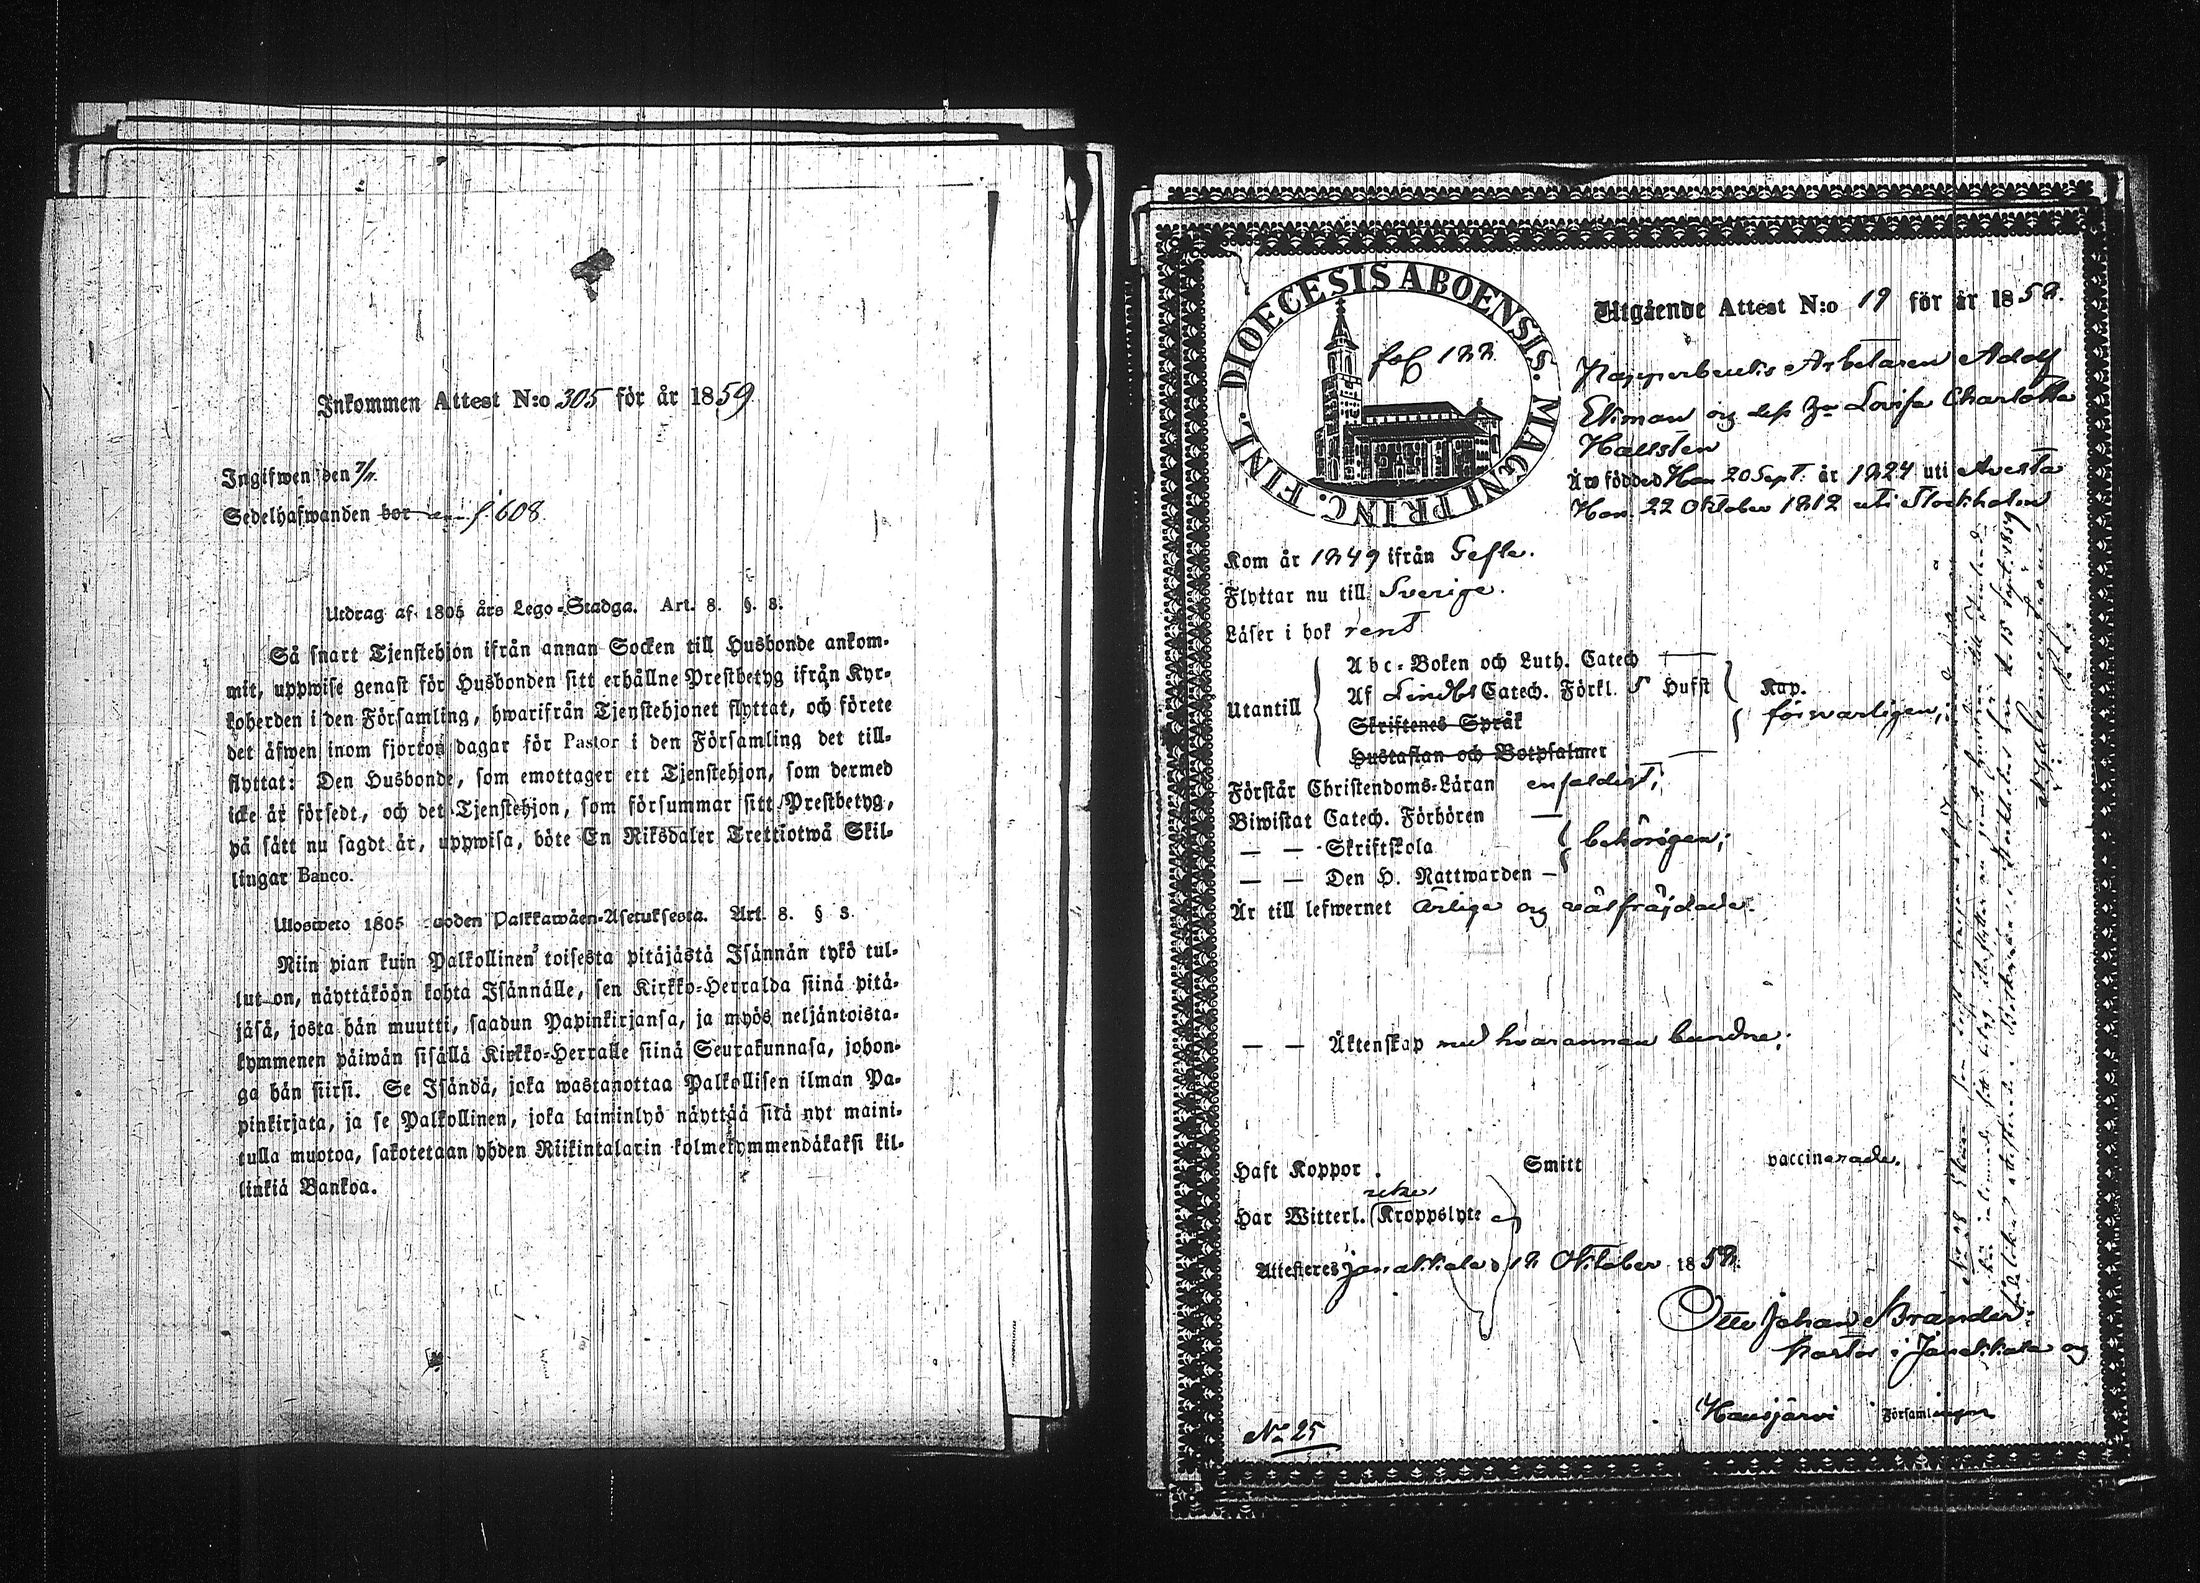 Inkommen Attest N:o 305 för år 1859
Ingifwen den 7/
Sedelhafwanden bor f. 608
Utdrag af 1805 års Lego-Stadga. Art. 8. §. 8.
Så snart Tjenstehjon ifrån annan Socken till Husbonde ankom-
mit, uppwise genast för Husbonden sitt erhållne Prestbetyg ifrån Kyr-
koherden i den Församling, hwarifrån Tjenstehjonet flyttat, och förete
det äfwen inom fjorton dagar för Pastor i den Församling det till-
flyttat: Den Husbonde, som emottager ett Tjenstehjon, som dermed
icke är försedt, och det Tjenstehjon, som försummar sitt Prestbetyg,
på sätt nu sagdt är, uppwisa, böte En Riksdaler Trettiotwå Skil-
lingar Banco.
Ulosweto 1805 wooden Palkkawäen-Asetuksesta. Art. 8. § 8.
Niin pian kuin Palkollinen toisesta pitäjästä Isännän tykö tul-
lut on, näyttäköön kohta Isännälle, sen Kirkko-Herralda siinä pitä-
jäsä, josta hän muutti, saadun Papinkirjansa, ja myös neljäntoista-
kymmenen päiwän sisällä Kirkko-Herralle siinä Seurakunnasa, johon-
ga hän siirsi. Se Isändä, joka wastanottaa Palkollisen ilman Pa-
pinkirjata, ja se Palkollinen, joka laiminlyö näyttää sitä nyt maini-
tulla muotoa, sakotetaan yhden Riikintalarin kolmekymmendäkaksi kil-
linkiä Bankoa.
DIOECESIS ABOENSIS. MAGNI PRINC. FINL.
fol 188
Utgående Attest N:o 19 för år 1858.
Pappersbruks Arbetaren Adolf
Ekman og dess hu Lovisa Charlotta
Hallsten
Äro födde Han 20 Sept. år 1824 uti Avesta
Hon 22 Oktober 1812 uti Stockholm
Kom år 1849 ifrån Gefle.
Flyttar nu till Sverige.
Läser i bok rent
Utantill
Abc-Boken och Luth. Catech
Af Lindbs Catech. Förkl. 5 Hufst
Skriftenes Språk
Hustaflan och Botpsalmer
Kap.
försvarligen;
Förstår Christendoms-Läran enfaldigt;
Biwistat Catech. Förhören
— — Skriftskola
— — Den H. Nattwarden —
behörigen;
Är till lefwernet ärlige og välfräjdade.
— — Äktenskap med hvarannan bundne;
Haft Koppor . Smitt vaccinerade.
Har Witterl. Kroppslyte ej
Attesteres Janakkala d 18 Oktober 1858.
Otto Johan Brander.
Pastor i Janakkala og
Hausjärvi Församlingar
No 25